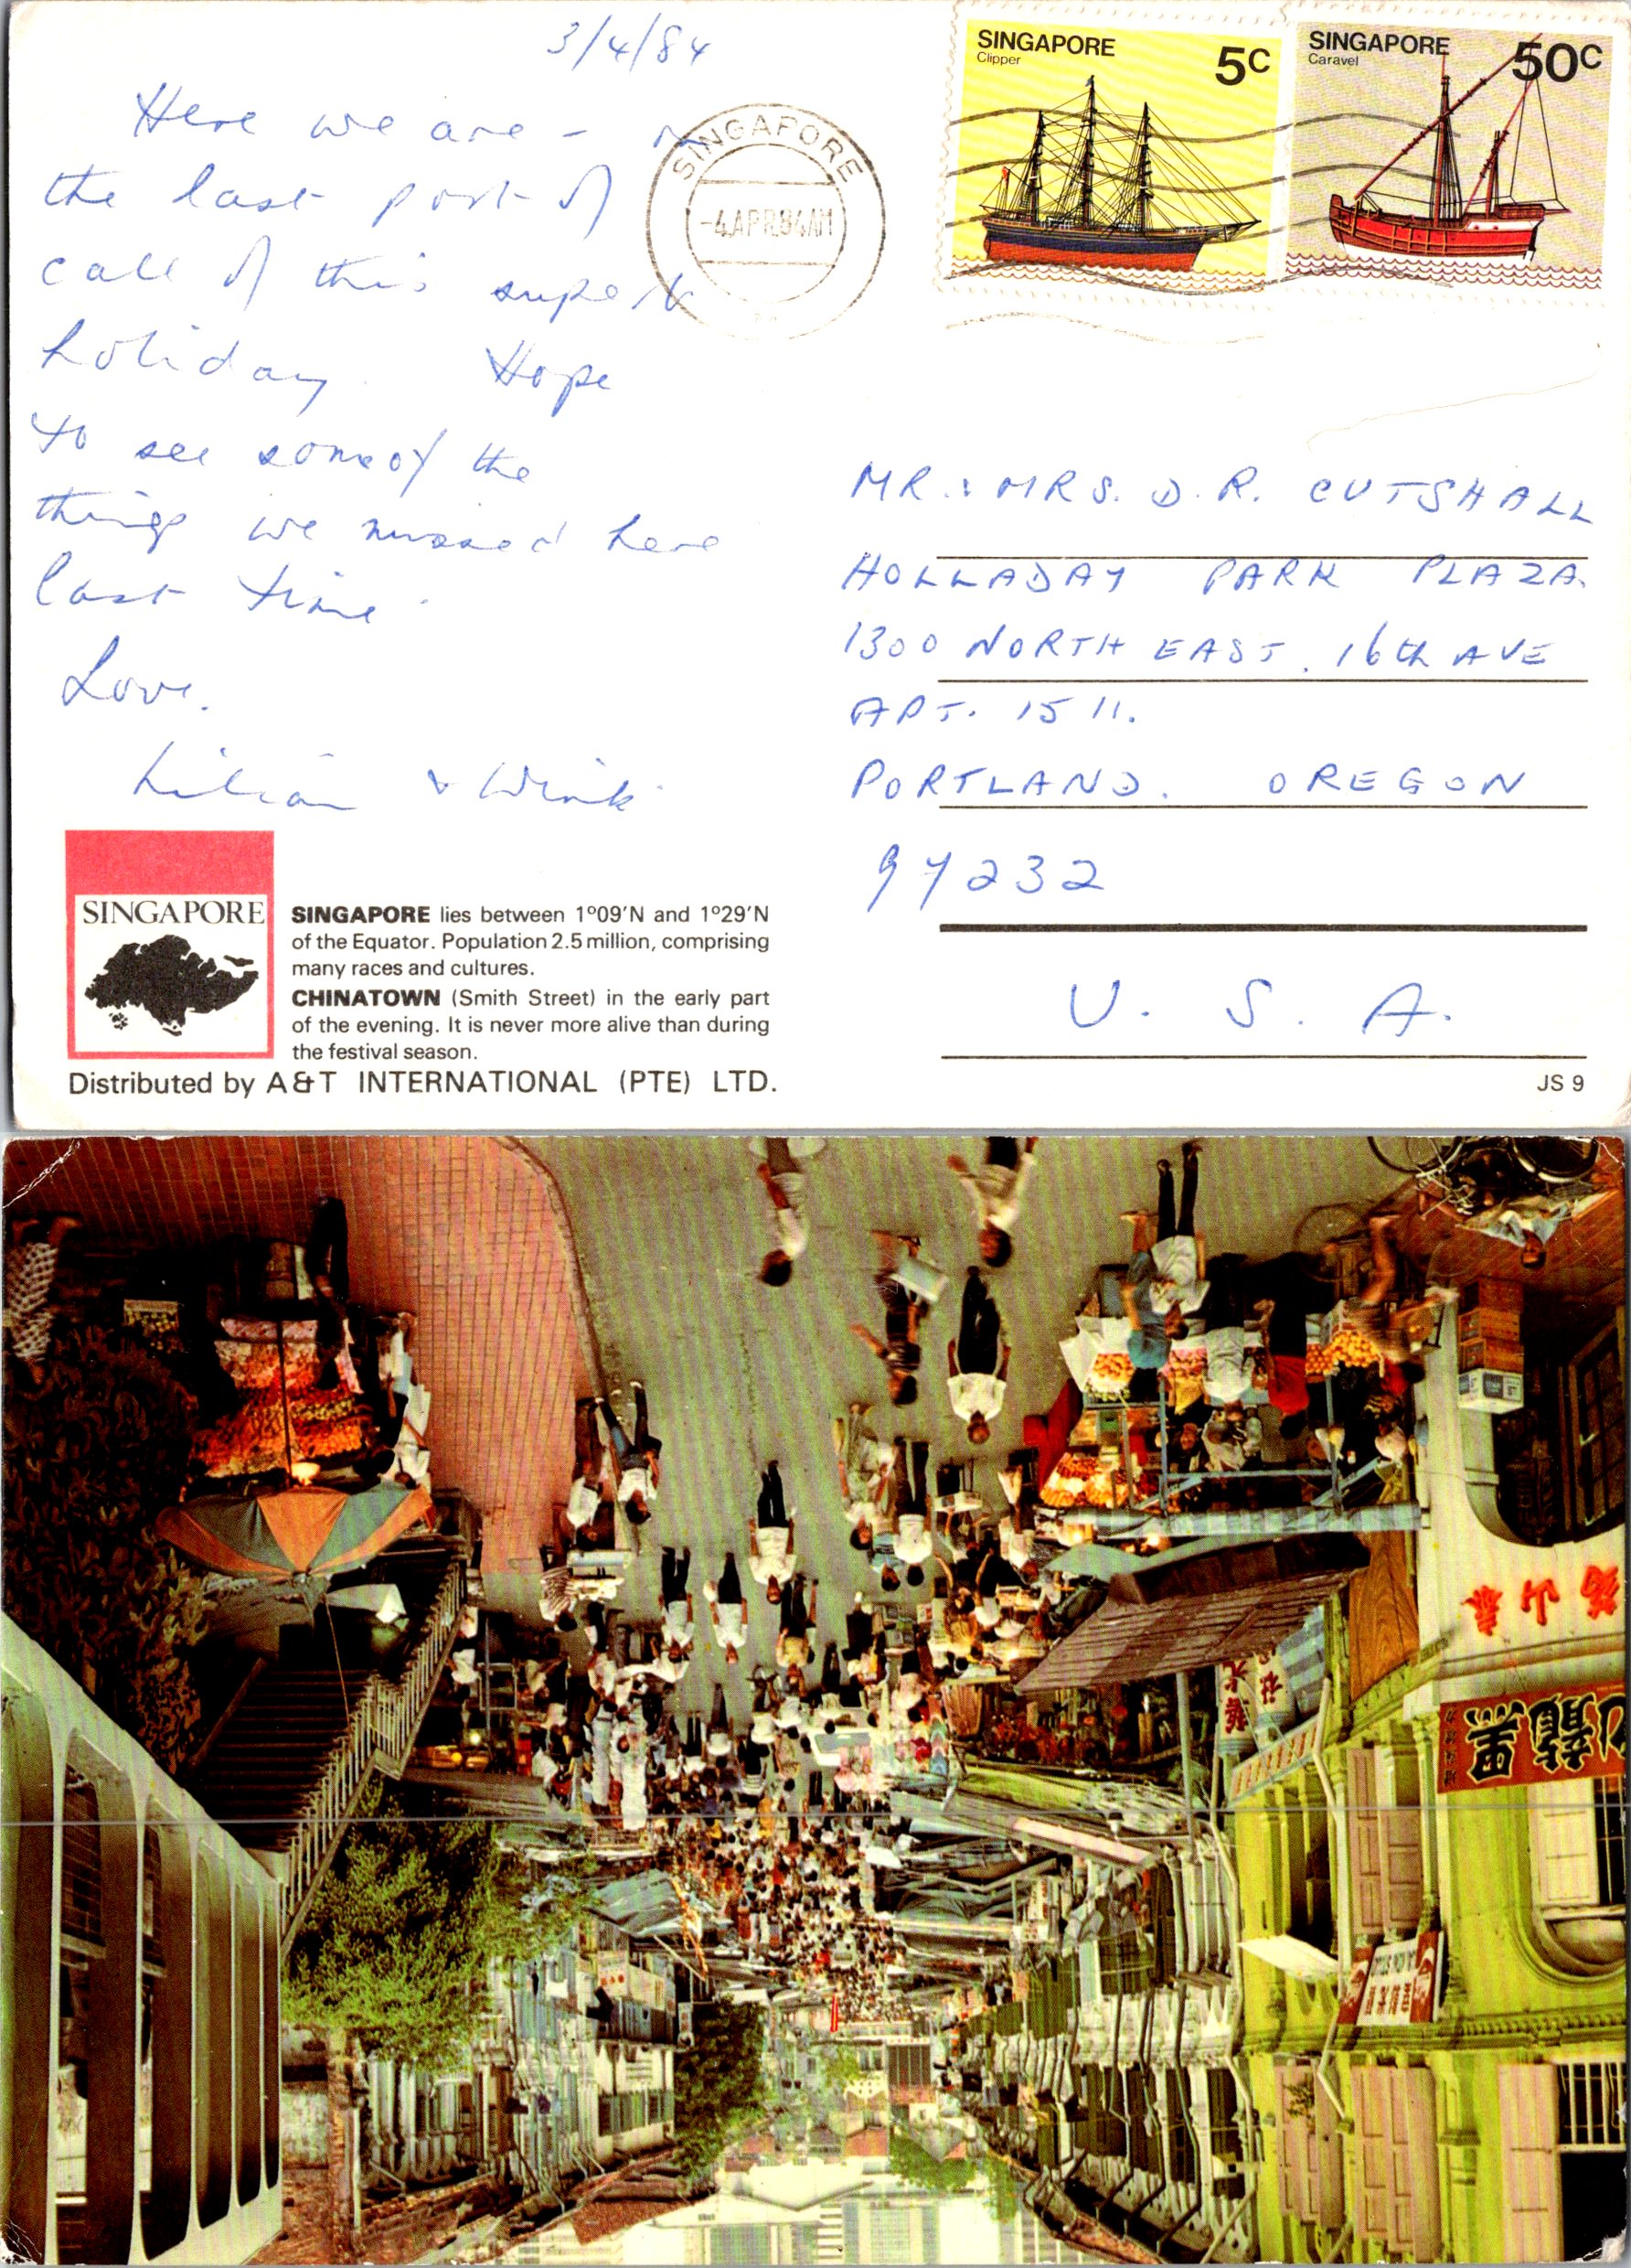 3/4/84
Here we are - in
the last port of
call of this superb
holiday. Hope
to see some of the
things we missed here
last time.
Love.
Lilian & Wink.
SINGAPORE
-4.APR.84AM
SINGAPORE
Clipper
5C
SINGAPORE
Caravel
50C
MR. & MRS. D. R. CUTSHALL
HOLLADAY PARK PLAZA.
1300 NORTH EAST. 16th AVE
APT. 1511.
PORTLAND. OREGON
97232
U. S. A.
SINGAPORE
SINGAPORE lies between 1º09'N and 1º29'N
of the Equator. Population 2.5 million, comprising
many races and cultures.
CHINATOWN (Smith Street) in the early part
of the evening. It is never more alive than during
the festival season.
Distributed by A&T INTERNATIONAL (PTE) LTD.
JS 9
山
龍黑